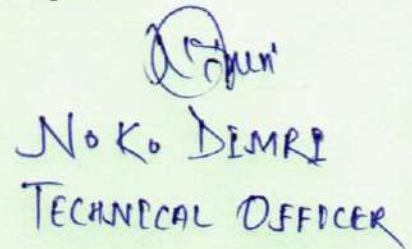 N. K. DIMRI
TECHNICAL OFFICER